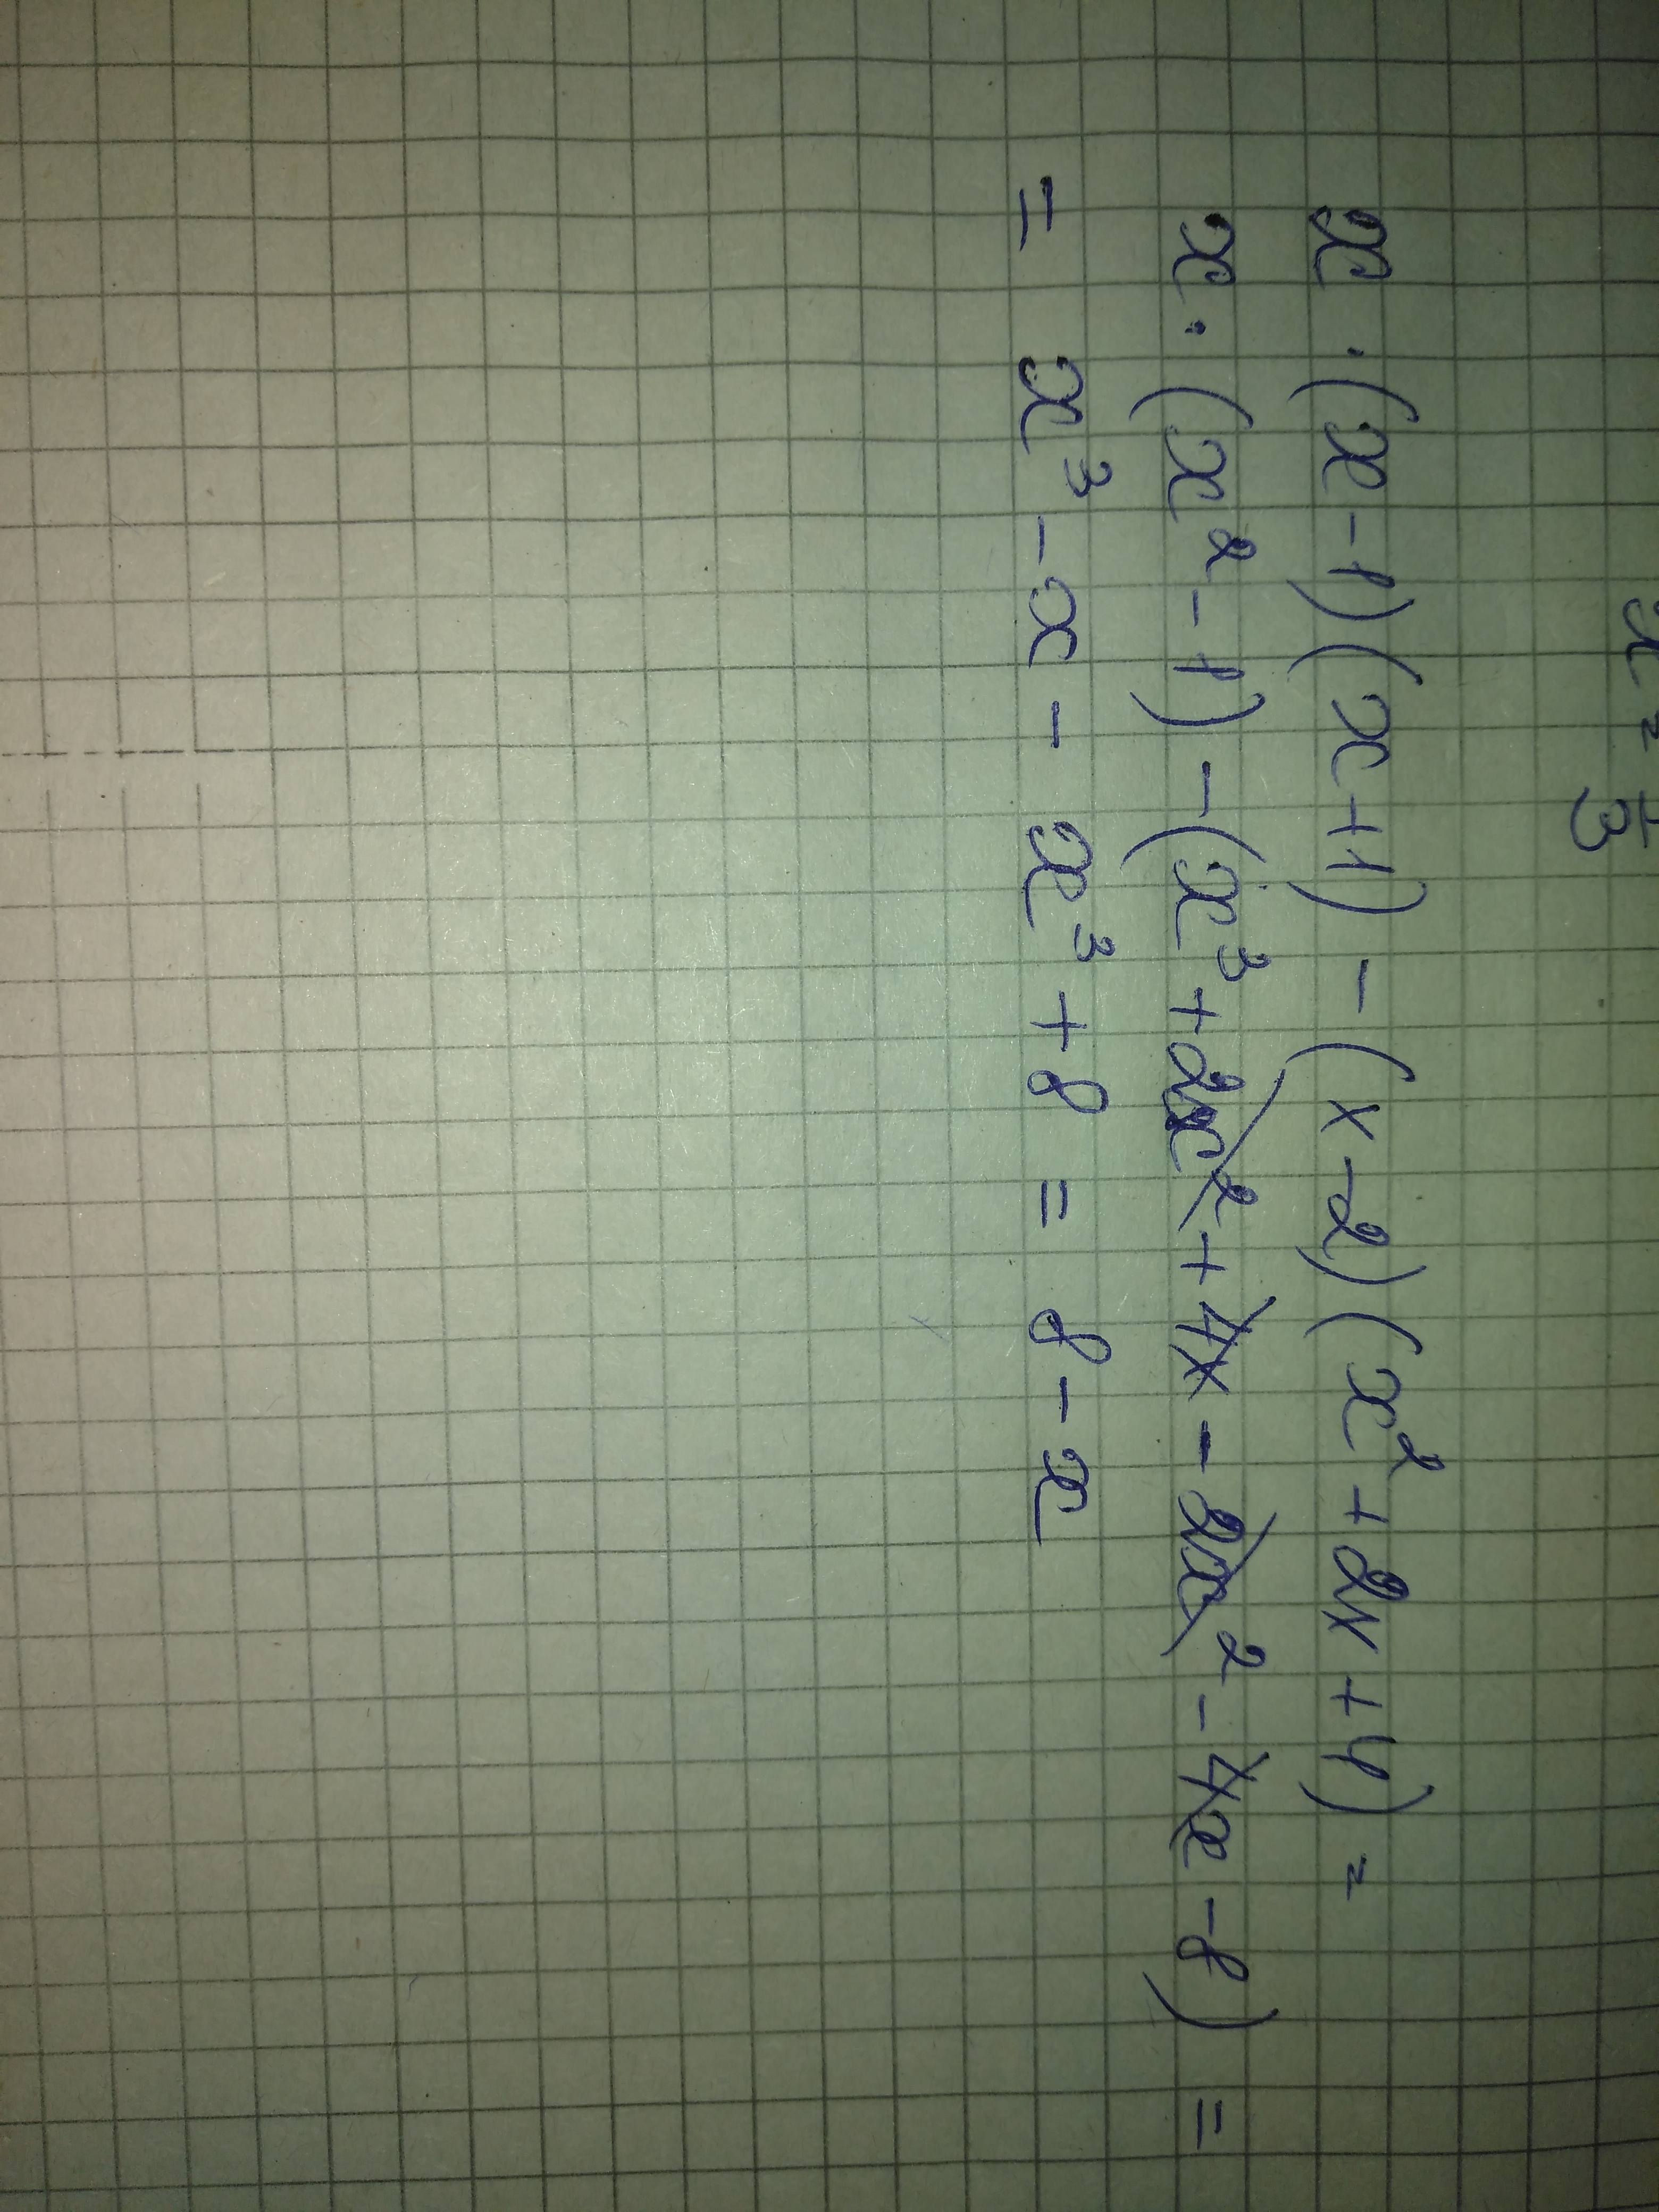 x = 1/3
x · (x - 1)(x + 1) - (x - 2)(x² + 2x + 4) =
x · (x² - 1) - (x³ + 2x² + 4x - 2x² - 4x - 8) =
= x³ - x - x³ + 8 = 8 - x